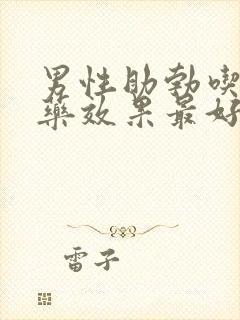 男性助勃喫
藥效果最好
雷子